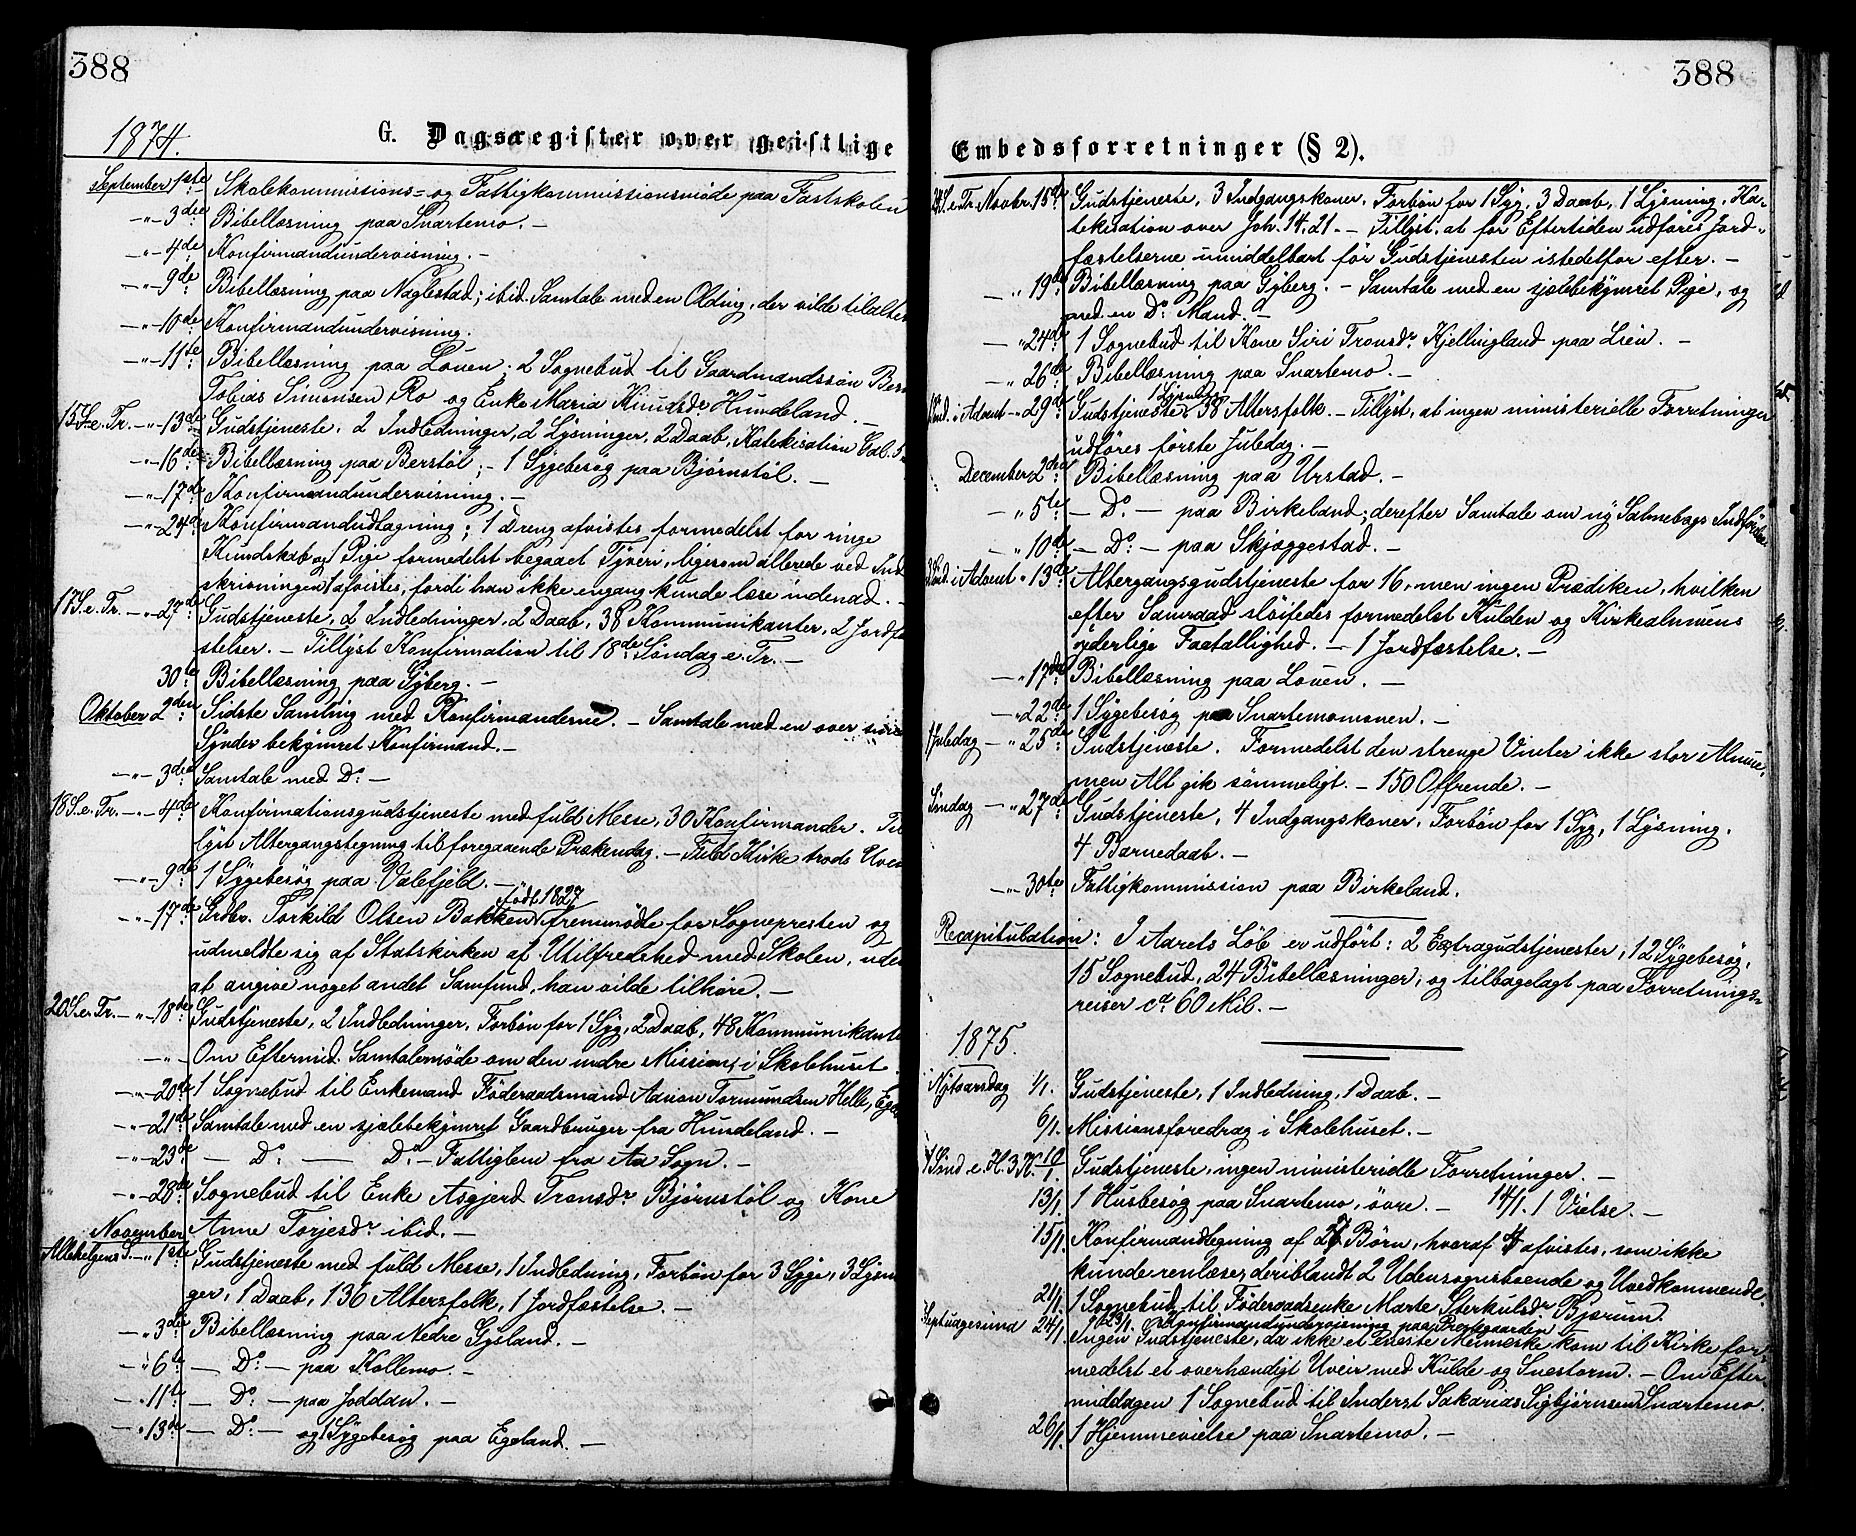 388
1874.
G. Dagsregister over geistlige
September 1ste Skolekommissions- og Fattigkommissionsmøde paa Fastskolen
-"- 3die Bibellæsning paa Snartemo. -
-"- 4de Konfirmandundervisning. -
-"- 9de Bibellæsning paa Naglestad; ibid. Samtale med en Olding, der vilde tilalters
-"- 10de Konfirmandundervisning.
-"- 11te Bibellæsning paa Louen; 2 Sognebud til Gaardmandssøn
Tobias Simonsen Ro og Enke Maria Knudsdr Hundeland. -
15 S. e. Tr. -"- 13de Gudstjeneste, 2 Indledninger, 2 Lysninger, 2 Daab, Katekisation Gal. 5
-"- 16de Bibellæsning paa Berstøl; - 1 Sygebesøg paa Bjørnstøl. -
-"- 17de Konfirmandundervisning. -
-"- 24de Konfirmandudtagning; 1 Dreng afvistes formedelst for ringe
Kundskab og 1 Pige formedelst begaaet Tyveri, ligesom allerede ved Ind
skrivningen 1 afvistes, fordi han ikke engang kunde læse indenad. -
17 S. e. Tr. -"- 27de Gudstjeneste, 2 Indledninger, 2 Daab, 38 Kommunikanter, 2 Jordfæ
stelser. - Tillyst Konfirmation til 18de Søndag e. Tr. -
30te Bibellæsning paa Gyberg. -
Oktober 2den Sidste Samling med Konfirmanderne. - Samtale med en over sine
Synder bekymret Konfirmand. -
-"- 3die Samtale med Do: -
18 S. e. Tr. -"- 4de Konfirmationsgudstjeneste med fuld Messe, 30 Konfirmander. Til
lyst Altergangstegning til foregaaende Prækendag. - Fuld Kirke trods Uveir
-"- 9de 1 Sygebesøg paa Valefjeld. -
født 1827
-"- 17de Grdbr. Torkild Olsen Bakken fremmødte for Sognepresten og
udmeldte sig af Statskirken af Utilfredshed med Skolen, uden
at angive noget andet Samfund, han vilde tilhøre. -
20 S. e. Tr. -"- 18de Gudstjeneste, 2 Indledninger, Forbøn for 1 Syg, 2 Daab, 48 Kommunikanter
-"- Om Eftermid. Samtalemøde om den indre Mission i Skolehuset.
-"- 20de 1 Sognebud til Enkemand Føderaadsmand Aanon Tormundsen Helle,
-"- 21de Samtale med en sjælebekymret Gaardbruger fra Hundeland. -
-"- 23de - Do: - Do - Fattiglem fra Aa Sogn. -
-"- 28de Sognebud til Enke Asgjerd Tronsdr Bjørnstøl og Kone
Anne Torjesdr ibid. -
November
Allehelgens S. -"- 1ste Gudstjeneste med fuld Messe, 1 Indledning, Forbøn for 3 Syge, 3 Lysnin
ger, 1 Daab, 136 Altersfolk, 1 Jordfæstelse. -
-"- 3die Bibellæsning paa Nedre Gysland. -
-"- 6te - Do: - paa Kollemo. -
-"- 11te - Do - paa Joddan. -
-"- 13de - Do: - og 1 Sygebesøg paa Egeland. -
388
Embedsforretninger (§ 2).
24 S. e. Tr. Novbr. 15de Gudstjeneste, 3 Indgangskoner, Forbøn for 1 Syg, 3 Daab, 1 Lysning, Ka-
tekisation over Joh. 14. 21. - Tillyst, at for Eftertiden udføres Jord-
fæstelserne umiddelbart før Gudstjenesten istedetfor efter. -
-"- 19de Bibellæsning paa Gyberg. - Samtale med en sjælebekymret Pige, og
med en Do: Mand. -
-"- 24de 1 Sognebud til Kone Siri Tronsdr Kjellingland paa Lien. -
-"- 26de Bibellæsning paa Snartemo. -
1 Lysning
1 Sönd. i Advent -"- 29de Gudstjeneste, 38 Altersfolk. - Tillyst, at ingen ministerielle Forretninger
udføres første Juledag. -
December 2den Bibellæsning paa Urstad. -
-"- 5te - Do - paa Birkeland; derefter Samtale om ny Salmebogs Indførelse
-"- 10de - Do: - paa Skjøggestad. -
3 Sönd. i Advent -"- 13de Altergangsgudstjeneste for 16, men ingen Prædiken, hvilken
efter Samraad sløifedes formedelst Kulden og Kirkealmuens
yderlige Faatallighed. - 1 Jordfæstelse. -
-"- 17de Bibellæsning paa Louen. -
-"- 22de 1 Sygebesøg paa Snartemomonen. -
1 Juledag -"- 25de Gudstjeneste. Formedelst den strenge Vinter ikke stor Almue,
men Alt gik sømmeligt. - 150 Offrende. -
Søndag -"- 27de Gudstjeneste, 4 Indgangskoner, Forbøn for 1 Syg, 1 Lysning,
4 Barnedaab. -
-"- 30te Fattigkommission paa Birkeland.
Recapitulation: I Aarets Løb er udført: 2 Extragudstjenester, 12 Sygebesøg,
15 Sognebud, 24 Bibellæsninger, og tilbagelagt paa Forretnings-
reiser ca 60 Mil. -
1875.
Nytaarsdag 1/1. Gudstjeneste, 1 Indledning, 1 Daab. -
6/1. Missionsforedrag i Skolehuset. -
1 Sönd e. H. 3 K. 10/1 Gudstjeneste, ingen ministerielle Forretninger. -
13/1. 1 Husbesøg paa Snartemo, øvre. - 14/1. 1 Vielse. -
15/1. Konfirmandtegning af 27 Børn, hvoraf 4 afvistes, som ikke
kunde renlæse, deriblandt 2 Udensognsboende og Uvedkommende.
21/1. 1 Sognebud til Føderaadsenke Marte Sterkulsdr Bjærum.
23/1. Konfirmandundervisning paa Prestegaarden -
Septuagesima 24/1. Ingen Gudstjeneste, da ikke et eneste Menneske kom til Kirke for-
medelst et overhændigt Uveir med Kulde og Snestorm. - Om Efter-
middagen 1 Sognebud til Inderst Sakarias Sigbjørnsen Snartemo.
26/1. 1 Hjemmevielse paa Snartemo. -